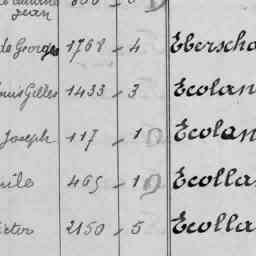 Jean
de Georges 1768 - 4 Ebersch
Louis Gilles 1433 - 3 Ecolan
Joseph 117 - 1 Ecolan
465 - 1 Ecolla
2150 - 5 Ecolla